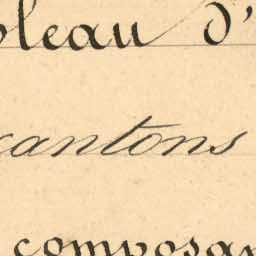 bleau d'
cantons
composan